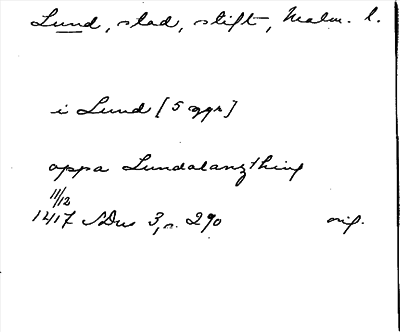 Lund, stad, stift, Malm. l.
i Lund [5 ggr]
oppa Lundalanzthing
11/12
1417 SDns 3, s. 290 orig.